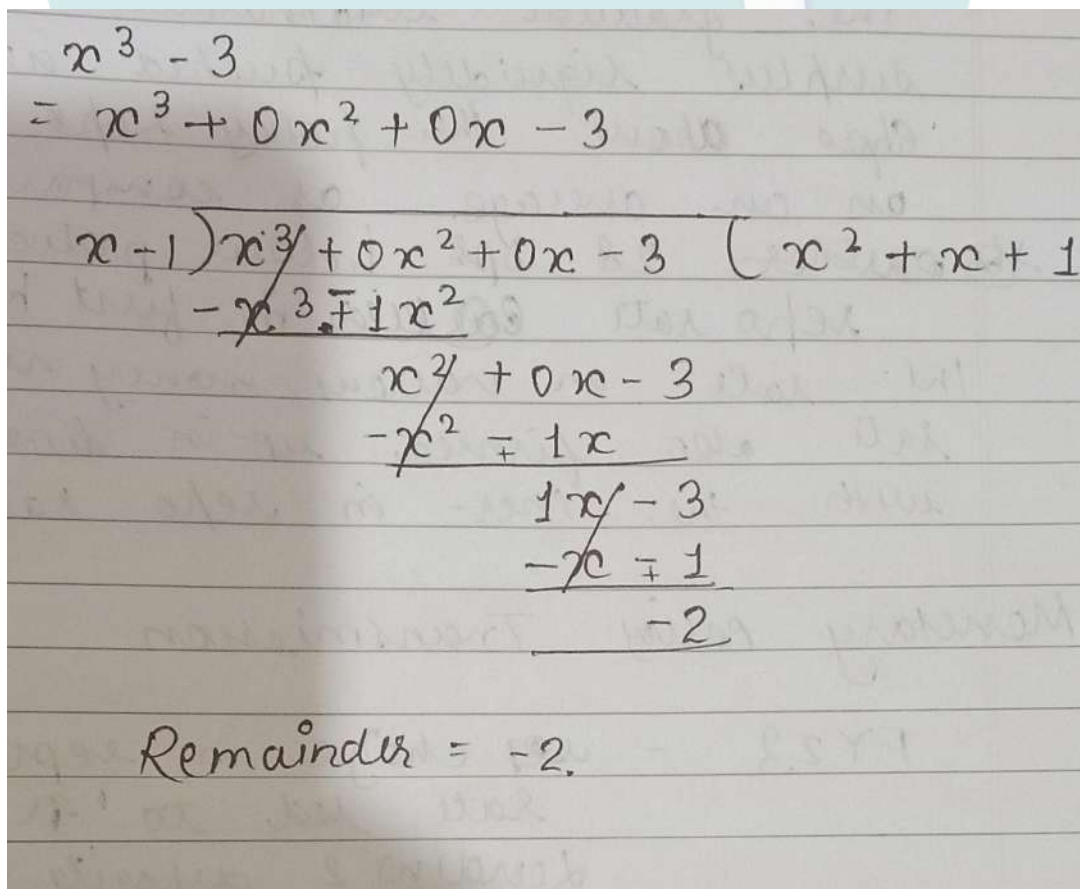 x³ - 3
= x³ + 0x² + 0x - 3
x - 1 ) x³ + 0x² + 0x - 3 ( x² + x + 1
- x³ ∓ 1x²
x² + 0x - 3
- x² ∓ 1x
1x - 3
- x ∓ 1
-2
Remainder = -2.